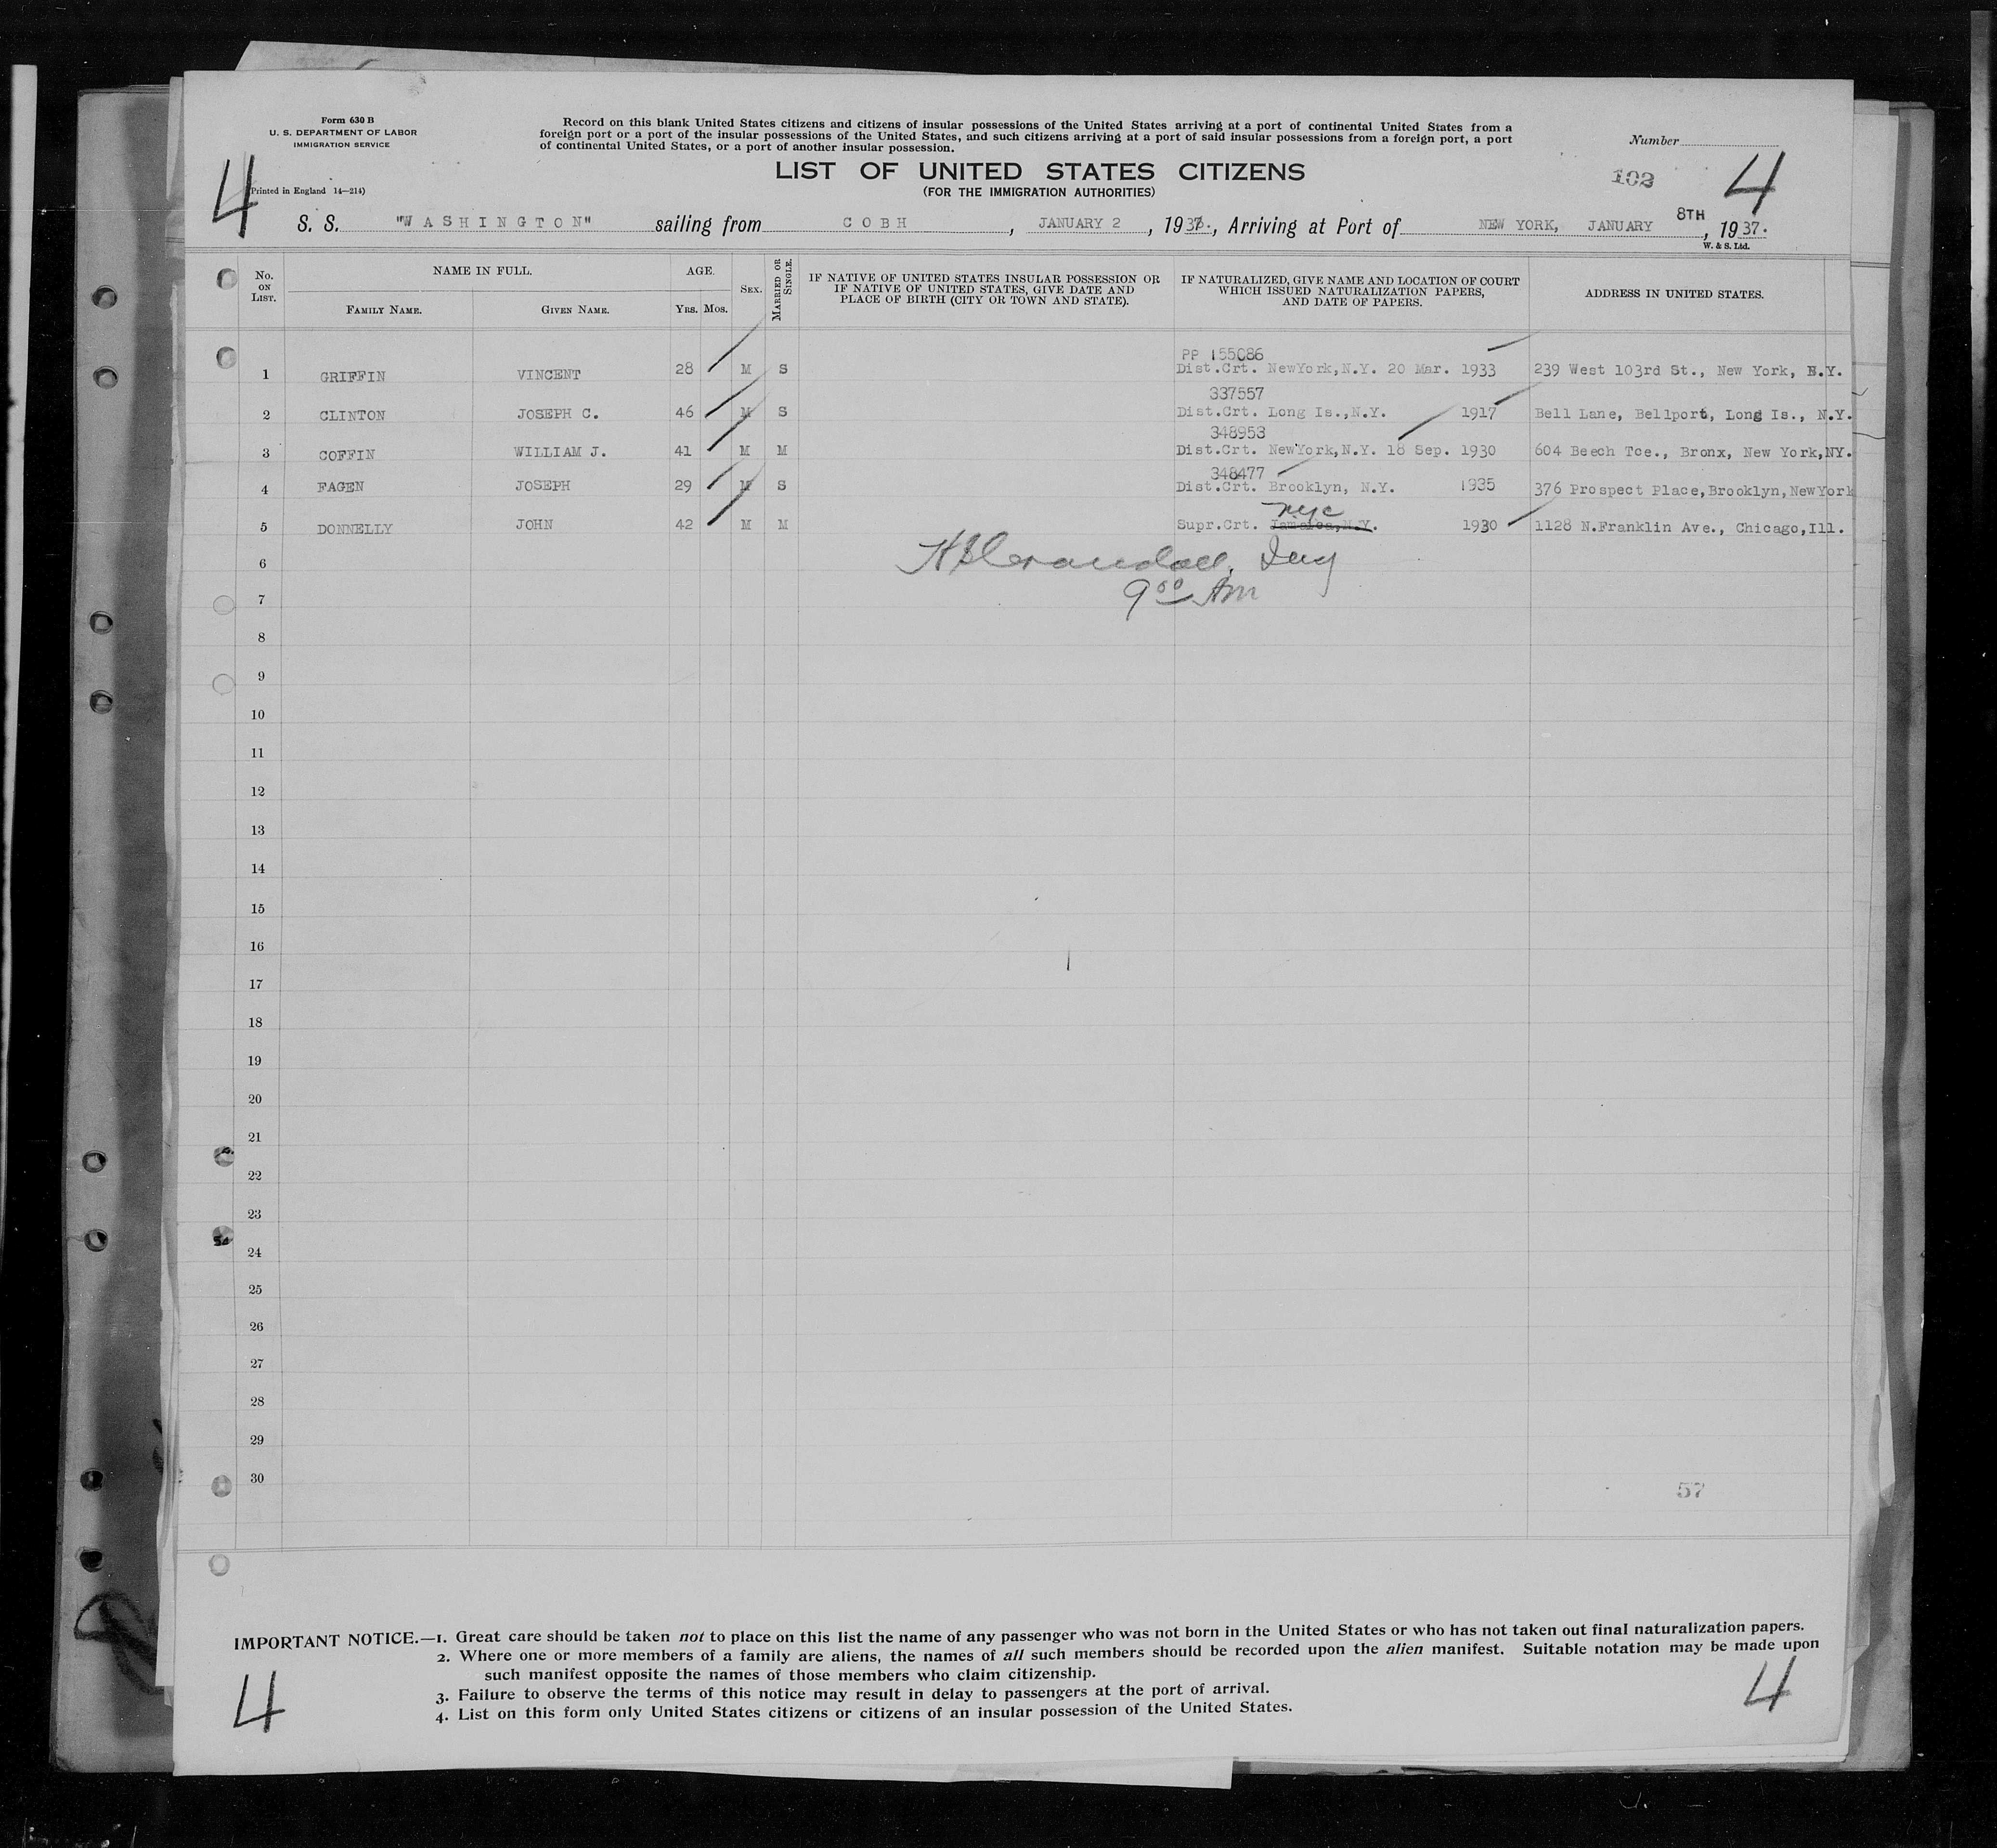 Form 630 B
U. S. DEPARTMENT OF LABOR
IMMIGRATION SERVICE
Record on this blank United States citizens and citizens of insular possessions of the United States arriving at a port of continental United States from a
foreign port or a port of the insular possessions of the United States, and such citizens arriving at a port of said insular possessions from a foreign port, a port
of continental United States, or a port of another insular possession.
Number
4
4
102
LIST OF UNITED STATES CITIZENS
(FOR THE IMMIGRATION AUTHORITIES)
Printed in England 14—214)
S. S. "WASHINGTON" sailing from COBH, JANUARY 2, 1937., Arriving at Port of NEW YORK, JANUARY 8TH, 1937.
W. & S. Ltd.
No. ON LIST.
NAME IN FULL.
FAMILY NAME. GIVEN NAME.
AGE.
YRS. MOS.
SEX.
MARRIED OR SINGLE.
IF NATIVE OF UNITED STATES INSULAR POSSESSION OR
IF NATIVE OF UNITED STATES, GIVE DATE AND
PLACE OF BIRTH (CITY OR TOWN AND STATE).
IF NATURALIZED, GIVE NAME AND LOCATION OF COURT
WHICH ISSUED NATURALIZATION PAPERS,
AND DATE OF PAPERS.
ADDRESS IN UNITED STATES.
PP 155086
1 GRIFFIN VINCENT 28 M S Dist.Crt. NewYork,N.Y. 20 Mar. 1933 239 West 103rd St., New York, N.Y.
337557
2 CLINTON JOSEPH C. 46 M S Dist.Crt. Long Is.,N.Y. 1917 Bell Lane, Bellport, Long Is., N.Y.
348953
3 COFFIN WILLIAM J. 41 M M Dist.Crt. NewYork,N.Y. 18 Sep. 1930 604 Beech Tce., Bronx, New York,NY.
348477
4 FAGEN JOSEPH 29 M S Dist.Crt. Brooklyn, N.Y. 1935 376 Prospect Place,Brooklyn,NewYork
nyc
5 DONNELLY JOHN 42 M M Supr.Crt. Jamaica,N.Y. 1930 1128 N.Franklin Ave., Chicago,Ill.
6
9 00 Am
7
8
9
10
11
12
13
14
15
16
17
18
19
20
21
22
23
24
25
26
27
28
29
30
57
IMPORTANT NOTICE.—1. Great care should be taken not to place on this list the name of any passenger who was not born in the United States or who has not taken out final naturalization papers.
2. Where one or more members of a family are aliens, the names of all such members should be recorded upon the alien manifest. Suitable notation may be made upon
such manifest opposite the names of those members who claim citizenship.
3. Failure to observe the terms of this notice may result in delay to passengers at the port of arrival.
4. List on this form only United States citizens or citizens of an insular possession of the United States.
4
4